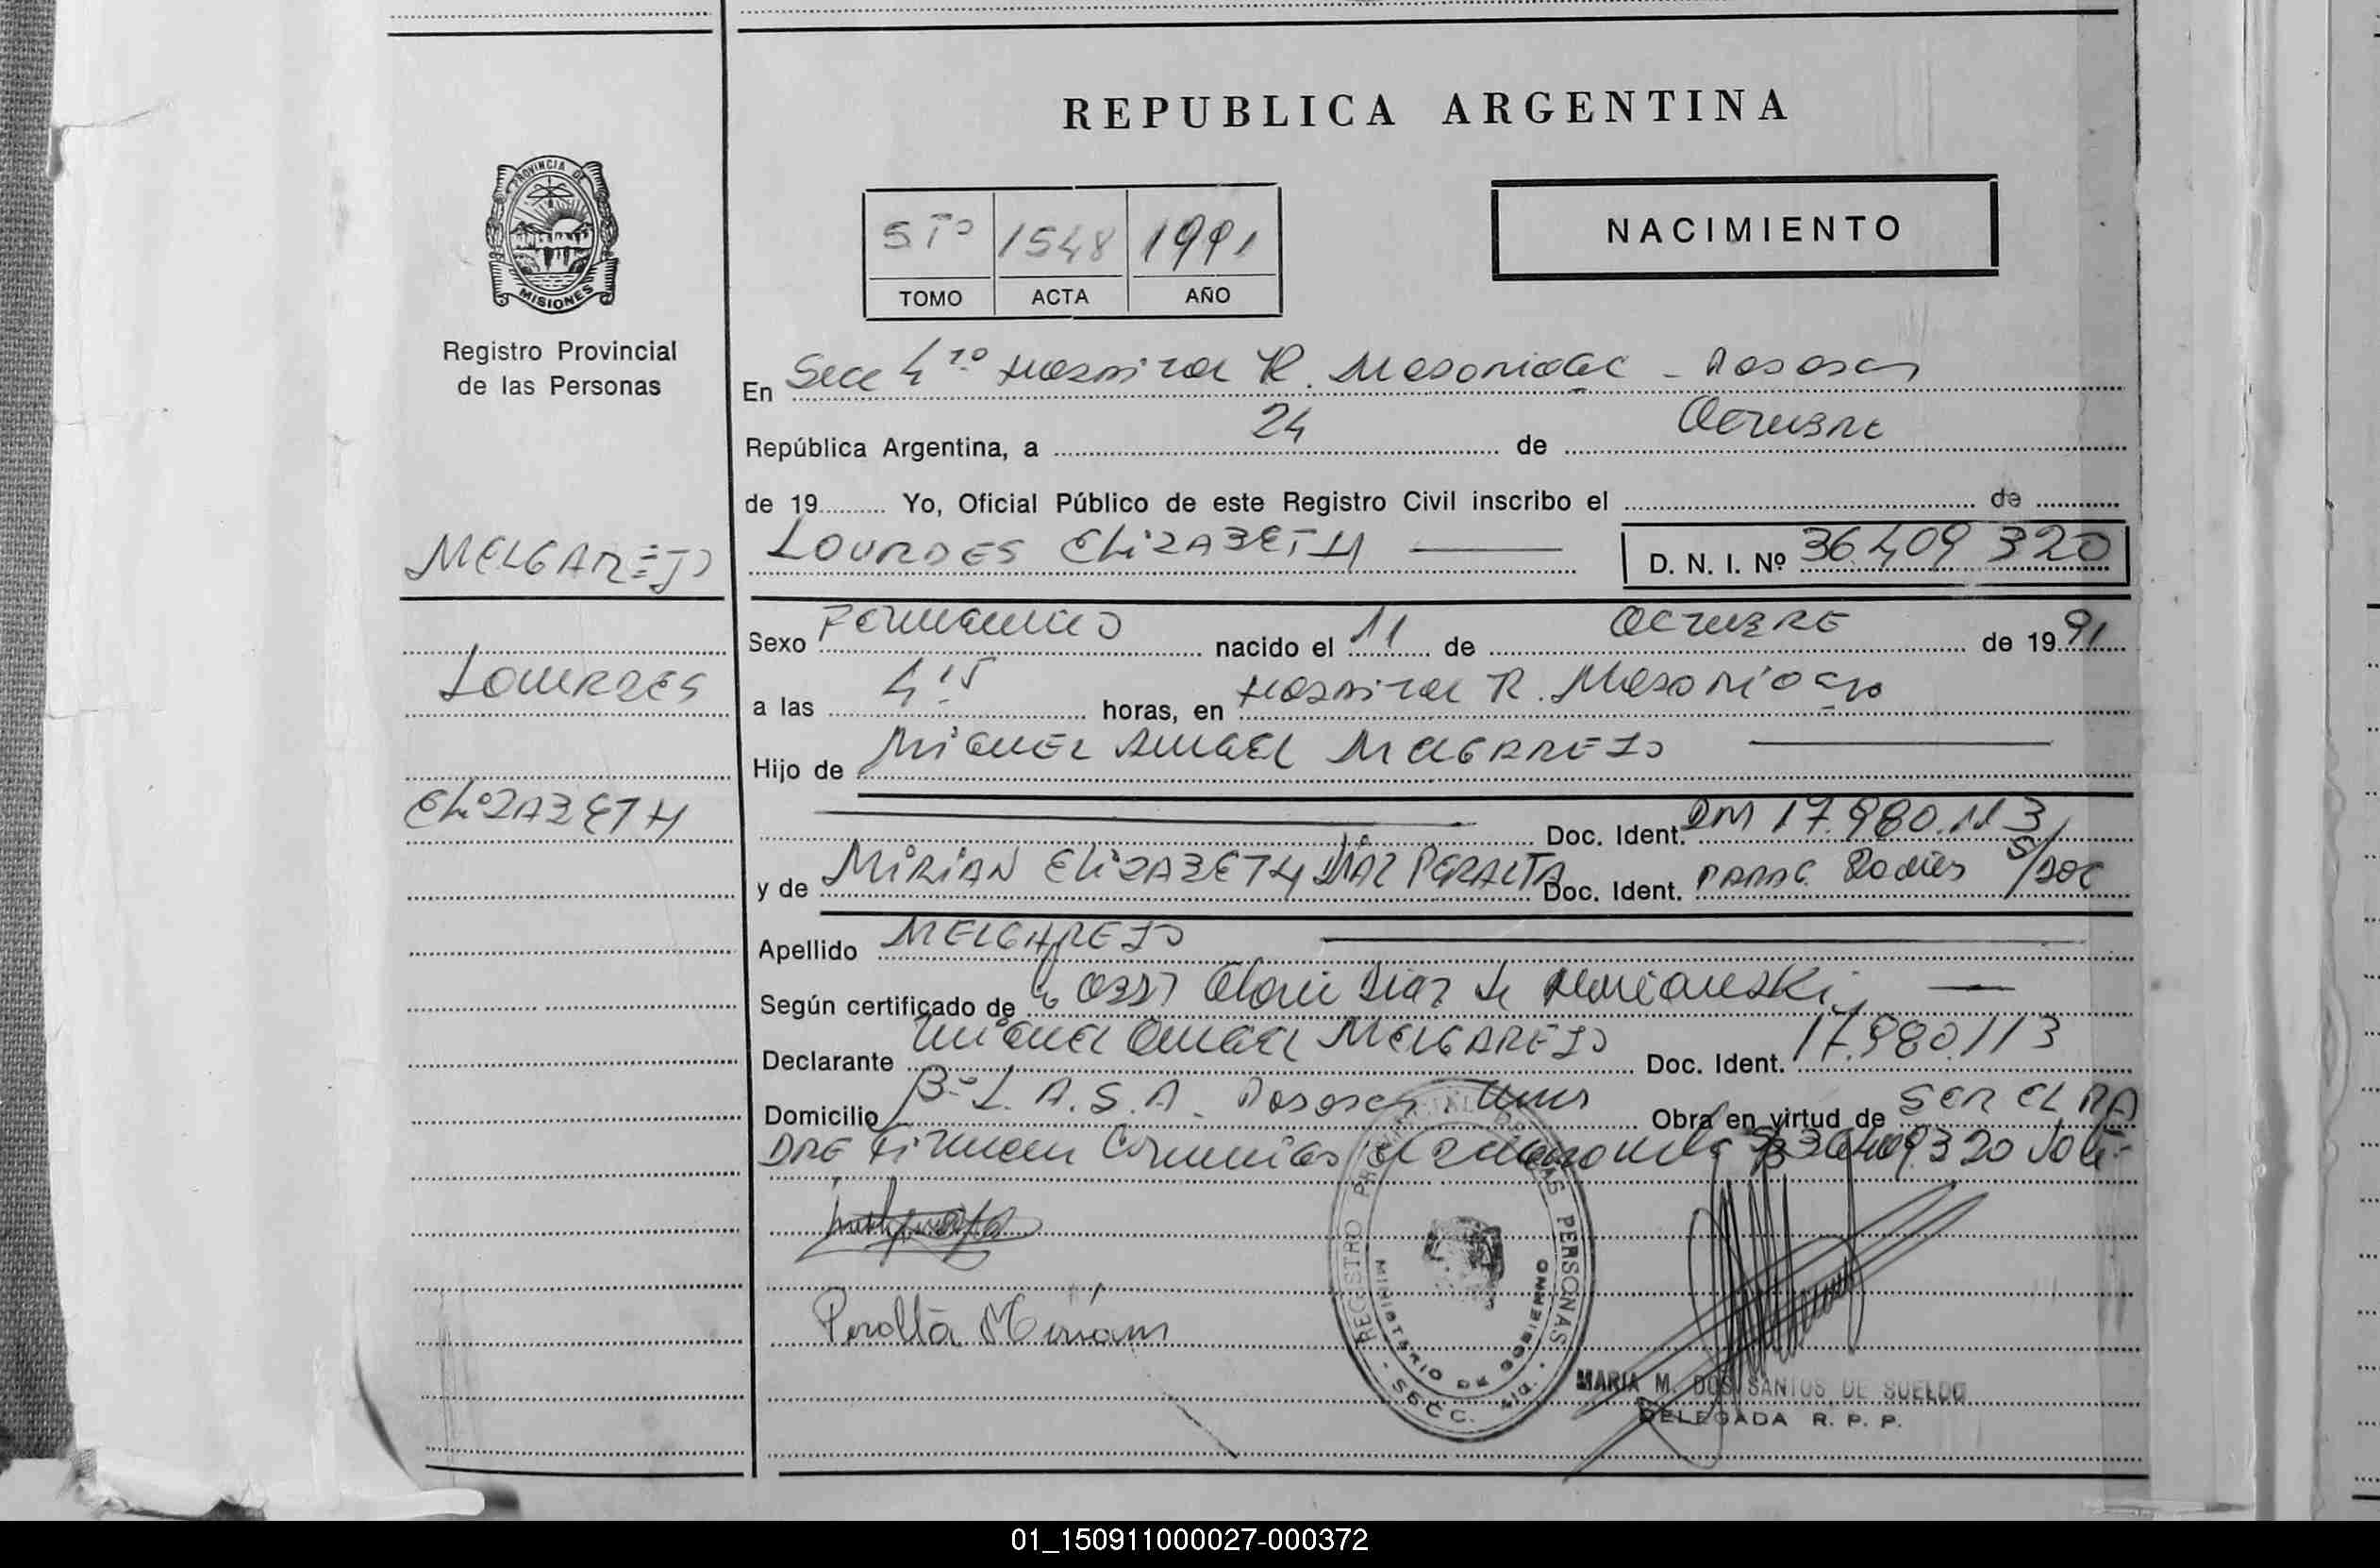 REPUBLICA ARGENTINA
PROVINCIA DE
MISIONES
Registro Provincial
de las Personas
5to 1548 1991
TOMO ACTA AÑO
NACIMIENTO
En Secc 4ta Hospital R. Madariaga - Posadas
República Argentina, a 24 de Octubre
de 19 Yo, Oficial Público de este Registro Civil inscribo el de
MELGAREJO
LOURDES ELIZABETH D. N. I. Nº 36.409 320
Sexo Femenino nacido el 11 de OCTUBRE de 1991
LOURDES
a las 4,15 horas, en Hospital R. Madariaga
Hijo de MIGUEL ANGEL MELGAREJO
ELIZABETH
Doc. Ident. DM 17.980.113
y de MIRIAN ELIZABETH DIAZ PERALTA Doc. Ident. S/DOC
Apellido MELGAREJO
Según certificado de la Obst Diaz de
Declarante Miguel Angel MELGAREJO Doc. Ident. 17.980.113
Domicilio Bº L. A. S. A. Posadas Mnes Obra en virtud de SER EL PA
DRE Firman 36409320
Peralta Miriam
REGISTRO PROVINCIAL DE LAS PERSONAS
MINISTERIO DE GOBIERNO
SECC. 4ta.
MARIA M. DOS SANTOS DE SUELDO
DELEGADA R. P. P.
01_150911000027-000372